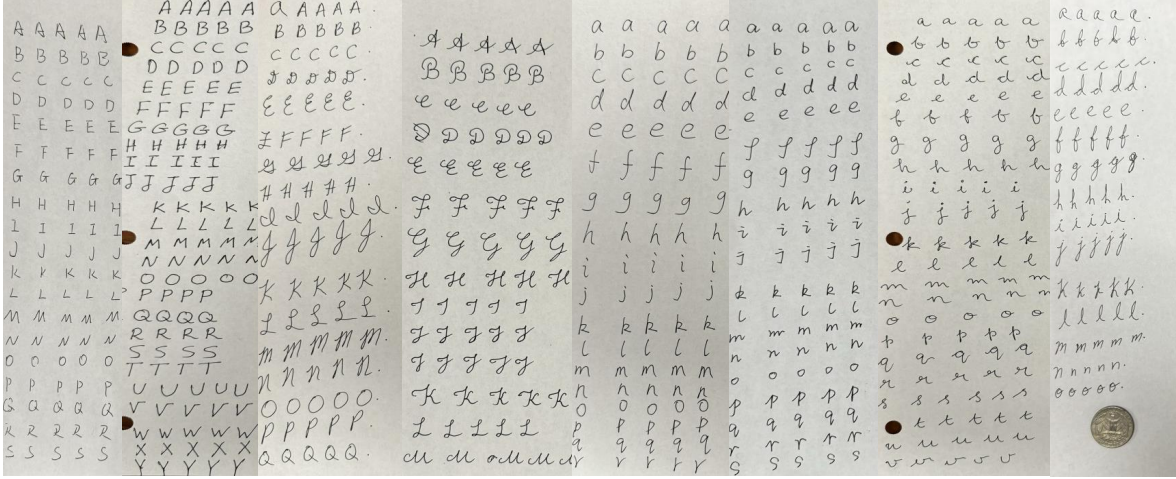 A A A A A
B B B B B
C C C C C
D D D D D
E E E E E
F F F F F
G G G G G
H H H H H
I I I I I
J J J J J
K K K K K
L L L L L
M M M M M
N N N N N
O O O O O
P P P P P
Q Q Q Q Q
R R R R R
S S S S S
A A A A A
B B B B B
C C C C C
D D D D D
E E E E E
F F F F F
G G G G G
H H H H H
I I I I I
J J J J J
K K K K K
L L L L L
M M M M M
N N N N N
O O O O O
P P P P
Q Q Q Q
R R R R
S S S S
T T T T
U U U U U
V V V V V
W W W W W
X X X X X
Y Y Y Y Y
a A A A A.
B B B B B.
C C C C C.
D D D D D.
E E E E E.
F F F F F.
G G G G G.
H H H H H.
I I I I I.
J J J J J.
K K K K K.
L L L L L.
M M M M M.
N N N N N.
O O O O O.
P P P P P.
Q Q Q Q Q.
A A A A A
B B B B B
C C C C C
D D D D D
E E E E E
F F F F F
G G G G G
H H H H H
I I I I I
J J J J J
J J J J J
K K K K K
L L L L L
M M M M M
a a a a a
b b b b b
c c c c c
d d d d d
e e e e e
f f f f f
g g g g g
h h h h h
i i i i i
j j j j j
k k k k k
l l l l l
m m m m m
n n n n n
o o o o o
p p p p p
q q q q q
r r r r r
a a a a a
b b b b b
c c c c c
d d d d d
e e e e e
f f f f f
g g g g g
h h h h h
i i i i i
j j j j j
k k k k k
l l l l l
m m m m m
n n n n n
o o o o o
p p p p p
q q q q q
r r r r r
s s s s s
a a a a a
b b b b b
c c c c c
d d d d d
e e e e e
f f f f f
g g g g g
h h h h h
i i i i i
j j j j j
k k k k k
l l l l l
m m m m m
n n n n n
o o o o o
p p p p p
q q q q q
r r r r r
s s s s s
t t t t
u u u u u
v v v v v
a a a a a.
b b b b b.
c c c c c.
d d d d d.
e e e e e.
f f f f f.
g g g g g.
h h h h h.
i i i i i.
j j j j j.
k k k k k.
l l l l l.
m m m m m.
n n n n n.
o o o o o.